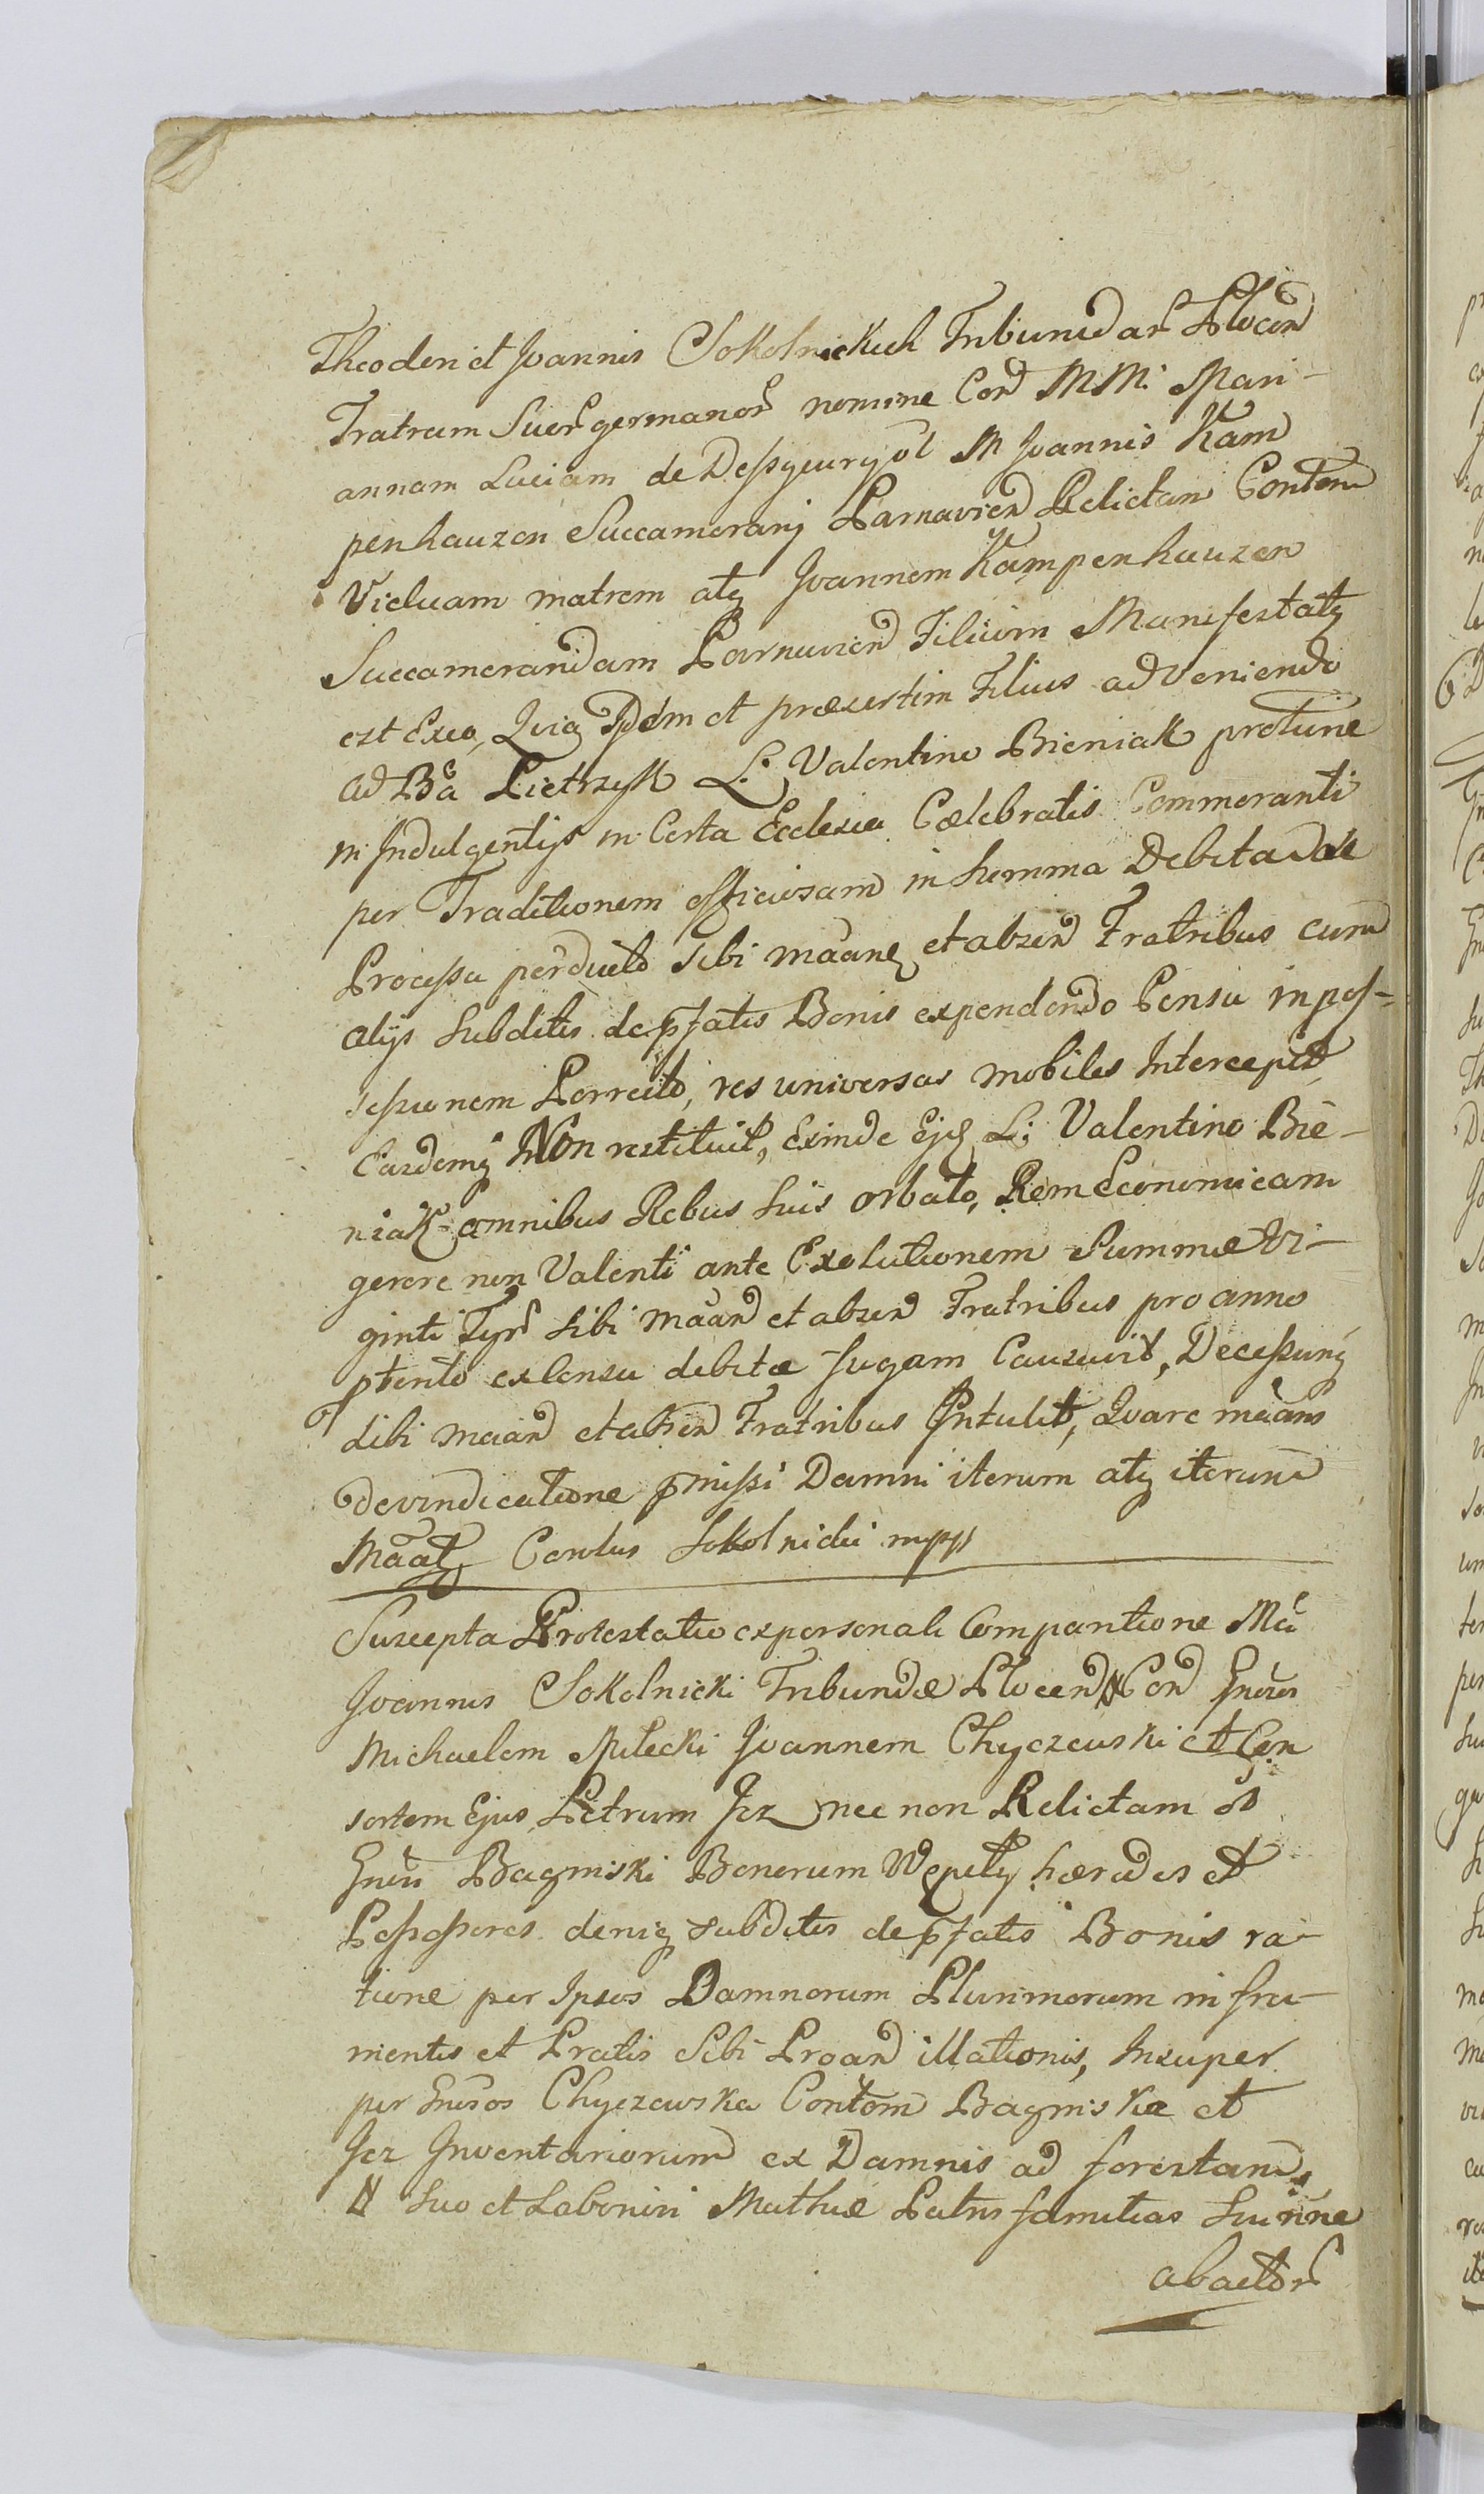 Theodori et Joannis Sokolnickich Tribunidar Plocen
Fratrum Suor germanor nomine Con MM: Mari-
annam Luciam de M Joannis Kam
penhauzen Succamerarij Parnavien Relictam Contem
Viduam matrem atq Joannem Kampenhauzen
Succameraridam Parnavien Filium Manifestatq
est Exeo, Quia Iidem et præsertim Filius adveniendo
ad Ba Pietrzyk L. Valentino Bieniak protunc
in Indulgentijs in Certa Ecclesia Cælebratis Commoranti
per Traditionem officiosam in summa Debita
Processu perducto sibi maane et absen Fratribus cum
alijs subditis depfatis Bonis expendendo Censu in pos-
sessionem Porrecto, res universas mobiles Intercepit,
Easdemq Non restituit, exinde Ejq L: Valentino Bie-
niak omnibus Rebus suis orbato, Rem Economicam
gerere non Valenti ante Exolutionem Summæ Vi-
ginti Tyr sibi maan et absen Fratribus pro anno
ptento ex Censu debitæ fugam Causavit, Decessumq
sibi maan et absen Fratribus Intulit, Quare maans
devindicatione pmissi Damni iterum atq iterum
Maatq Carolus Sokolnicki mpp
Suscepta Protestatio ex personali Comparitione Mci
Joannis Sokolnicki Tribunidæ Plocen Con Gnosos
Michaelem Milecki Joannem Chyczewski et Con
sortem Ejus, Petrum Jez nec non Relictam ol
Gnosi Bagniski Bonorum Wepeły hæredes et
Possessores deniq subditis depfatis Bonis ra-
tione per Ipsos Damnorum Plurimorum in fru-
mentis et Pratis Sibi Proan illationis, Insuper
per Gnosos Chyczewska Contem Bagniska et
Jez Inventariorum ex Damnis ad forestam
suo et Laboriosi Mathiæ Patris familias sui nne
abactor